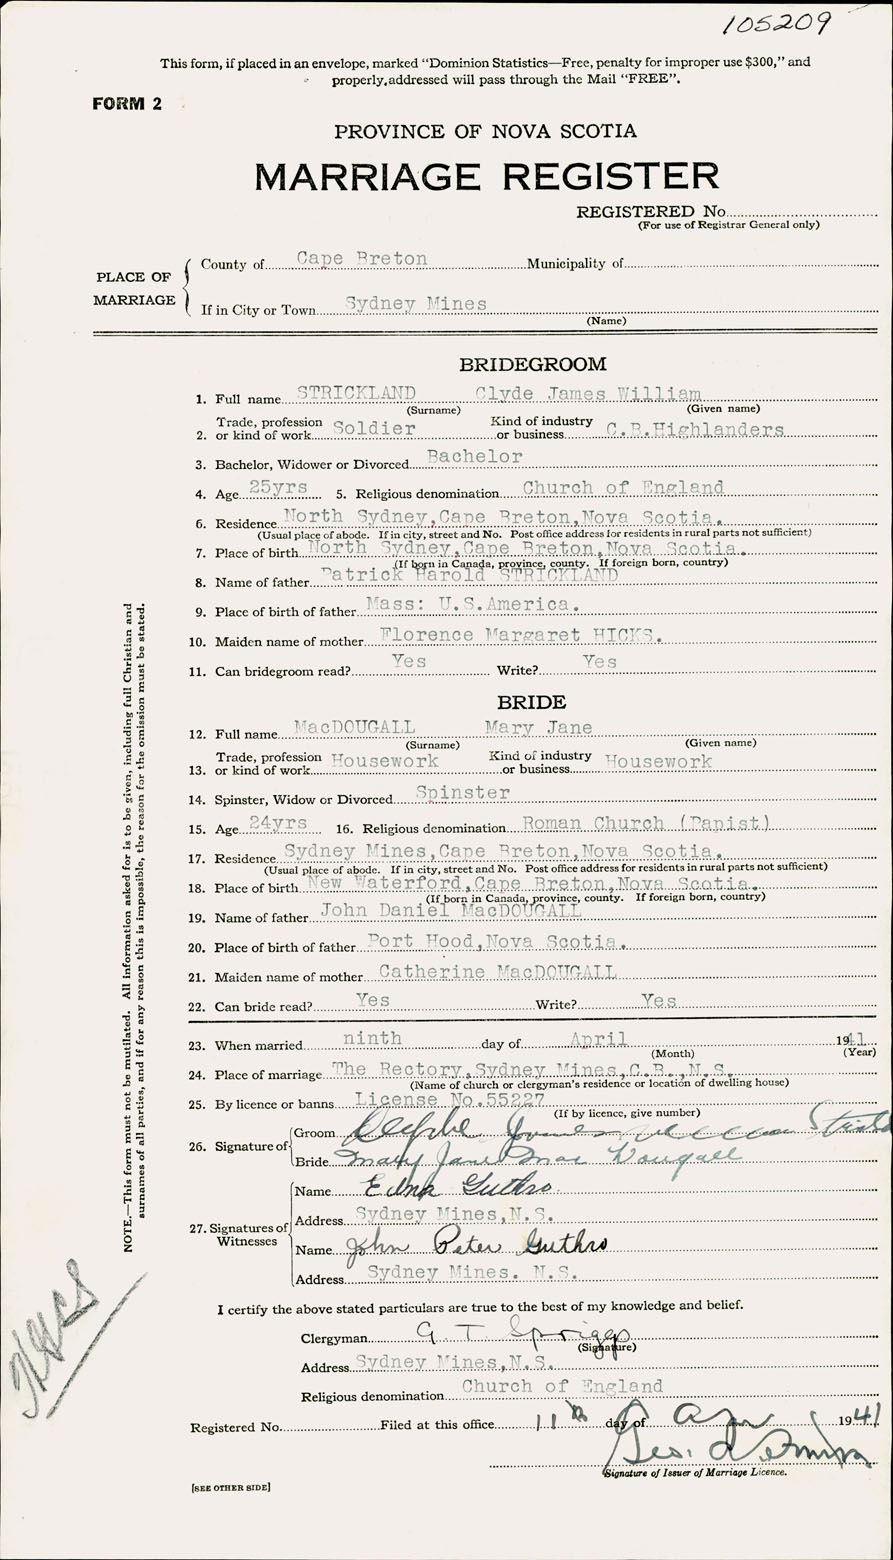 105209
This form, if placed in an envelope, marked "Dominion Statistics—Free, penalty for improper use $300," and
properly addressed will pass through the Mail "FREE".
FORM 2
PROVINCE OF NOVA SCOTIA
MARRIAGE REGISTER
REGISTERED No.
(For use of Registrar General only)
PLACE OF MARRIAGE
County of Cape Breton Municipality of
If in City or Town Sydney Mines
(Name)
BRIDEGROOM
1. Full name STRICKLAND Clyde James William
(Surname) (Given name)
2. Trade, profession or kind of work Soldier Kind of industry or business C.B.Highlanders
3. Bachelor, Widower or Divorced Bachelor
4. Age 25yrs 5. Religious denomination Church of England
6. Residence North Sydney,Cape Breton,Nova Scotia.
(Usual place of abode. If in city, street and No. Post office address for residents in rural parts not sufficient)
7. Place of birth North Sydney,Cape Breton,Nova Scotia.
(If born in Canada, province, county. If foreign born, country)
8. Name of father Patrick Harold STRICKLAND
9. Place of birth of father Mass: U.S.America.
10. Maiden name of mother Florence Margaret HICKS.
11. Can bridegroom read? Yes Write? Yes
BRIDE
12. Full name MacDOUGALL Mary Jane
(Surname) (Given name)
13. Trade, profession or kind of work Housework Kind of industry or business Housework
14. Spinster, Widow or Divorced Spinster
15. Age 24yrs 16. Religious denomination Roman Church (Papist)
17. Residence Sydney Mines,Cape Breton,Nova Scotia.
(Usual place of abode. If in city, street and No. Post office address for residents in rural parts not sufficient)
18. Place of birth New Waterford,Cape Breton,Nova Scotia.
(If born in Canada, province, county. If foreign born, country)
19. Name of father John Daniel MacDOUGALL
20. Place of birth of father Port Hood,Nova Scotia.
21. Maiden name of mother Catherine MacDOUGALL
22. Can bride read? Yes Write? Yes
23. When married ninth day of April 1941
(Month) (Year)
24. Place of marriage The Rectory,Sydney Mines,C.B.,N.S.
(Name of church or clergyman's residence or location of dwelling house)
25. By licence or banns License No.55227
(If by licence, give number)
26. Signature of
Groom James William
Bride Mary Jane Mac Dougall
27. Signatures of Witnesses
Name Edna Guthro
Address Sydney Mines,N.S.
Name John Peter Guthro
Address Sydney Mines. N.S.
I certify the above stated particulars are true to the best of my knowledge and belief.
Clergyman G. T. Spriggs
(Signature)
Address Sydney Mines,N.S.
Religious denomination Church of England
Registered No. Filed at this office 11th day of 1941
Geo.
Signature of Issuer of Marriage Licence.
[SEE OTHER SIDE]
NOTE.—This form must not be mutilated. All information asked for is to be given, including full Christian and
surnames of all parties, and if for any reason this is impossible, the reason for the omission must be stated.